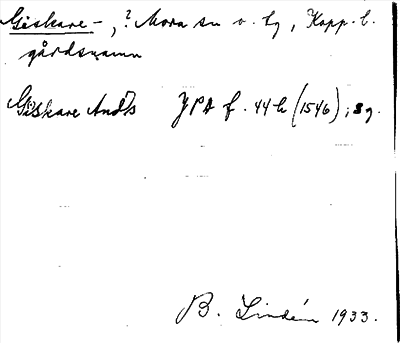 Giskare -, ? Mora sn o. tg, Kopp. l.
gårdsnamn
Giskare And's JPA f. 44 b (1546); sg.
B. Lindén 1933.